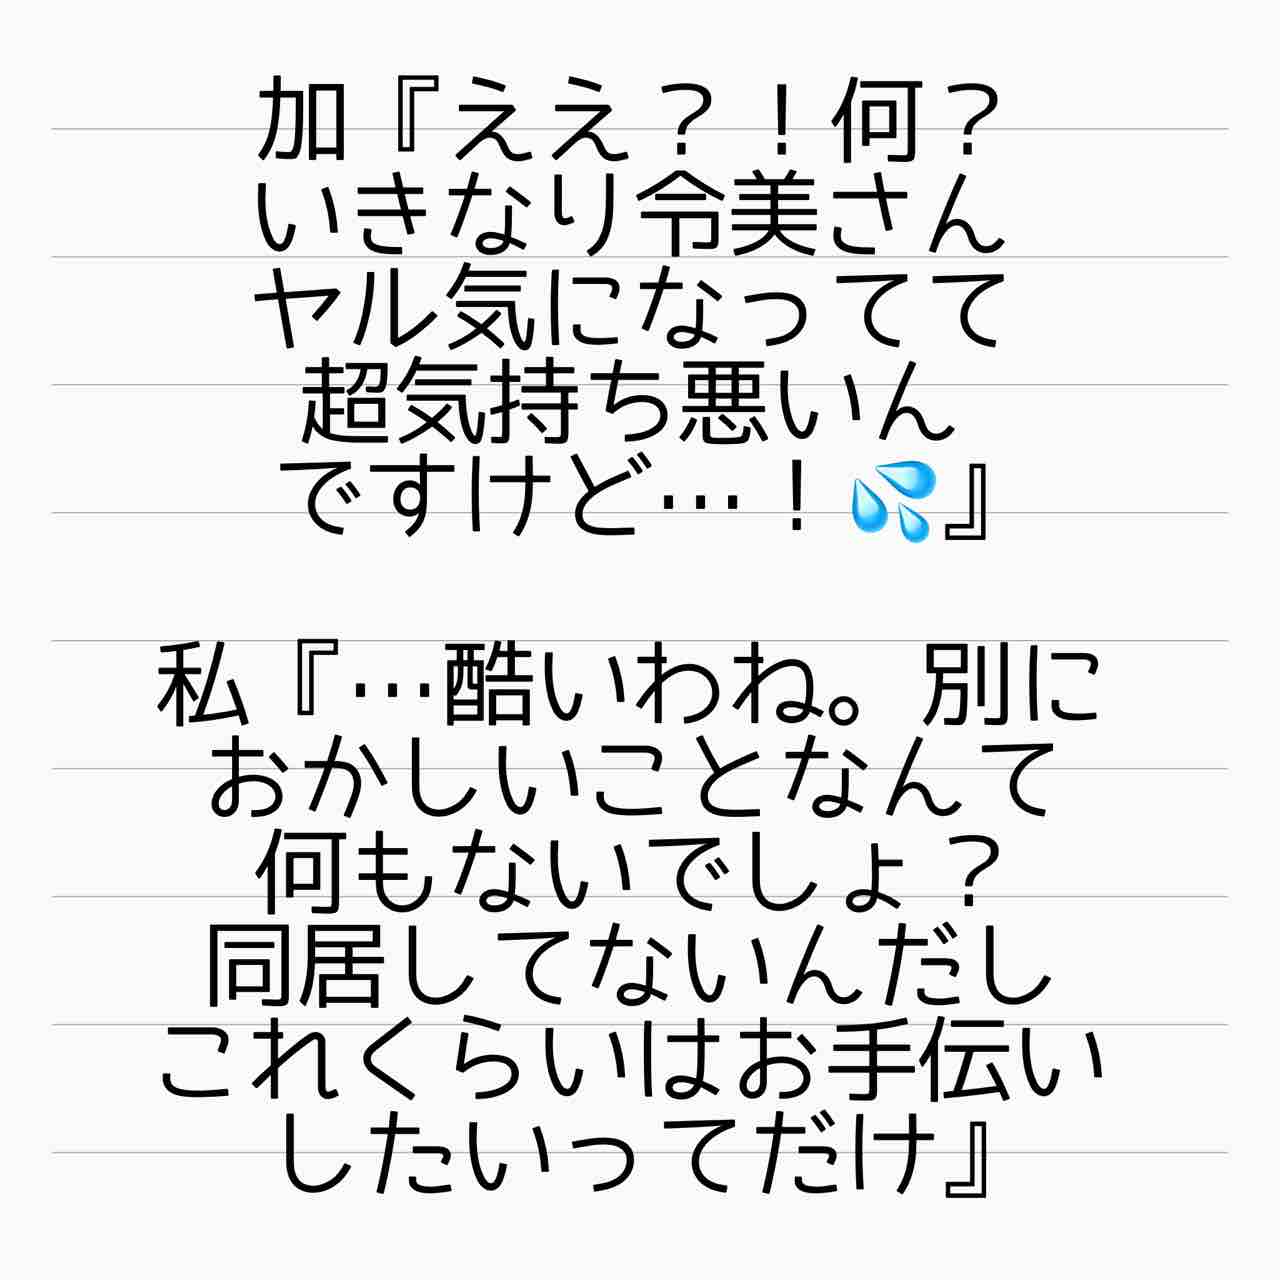 加『ええ？！何？
いきなり令美さん
ヤル気になってて
超気持ち悪いん
ですけど…！💦』
私『…酷いわね。別に
おかしいことなんて
何もないでしょ？
同居してないんだし
これくらいはお手伝い
したいってだけ』